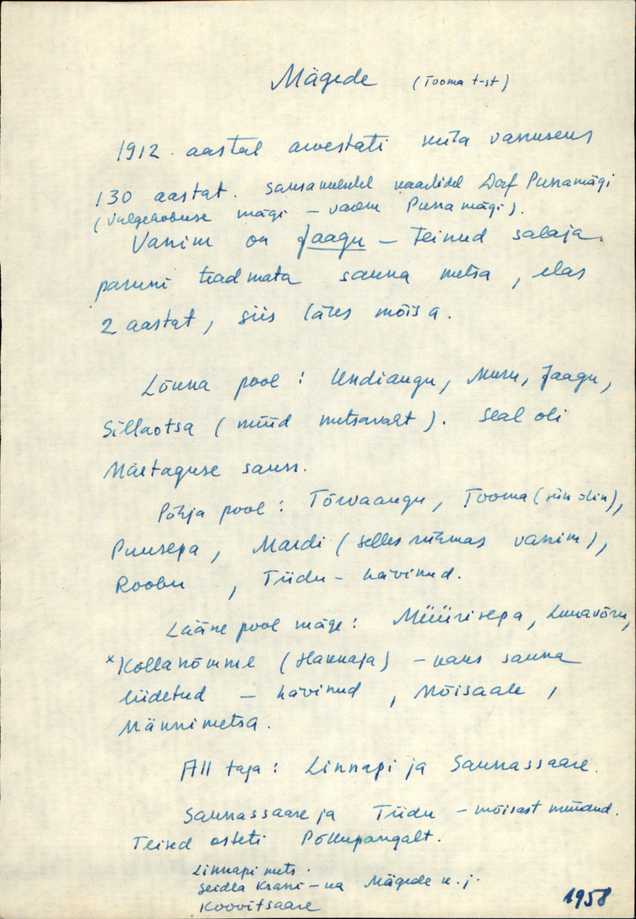 Mägede (Tooma t-st)
1912. aastal arvestati küla vanuseks
130 aastat. Saksamaelstel kaartidel Dorf Punamägi
(Valgehobuse mägi – varem Punamägi).
Vanim on Jaagu – Teinud salaja
paruni teadmata sauna metsa, elas
2 aastat, siis läks mõisa.
Lõuna pool: Undiaugu, Muru, Jaagu,
Sillaotsa (nüüd metsavaht). Seal oli
Mäetaguse saun.
Põhja pool: Tõrvaaugu, Tooma (siin olin),
Puusepa, Mardi (selles rühmas vanim),
Roobu, Tiidu – hävinud.
Lääne pool mäge: Müürisepa, Kuuavõru,
*Kollanõmme (Hannaja) – kaks sauna
liidetud – hävinud, Mõisaate,
Männimetsa.
All taga: Linnapi ja Saunassaare.
Saunassaare ja Tiidu – mõisast müüdud.
Teised osteti Põllupangalt.
Linnapi mets.
Seidla Kraavi – ka Mägede k. j.
Koovitsaare
1958